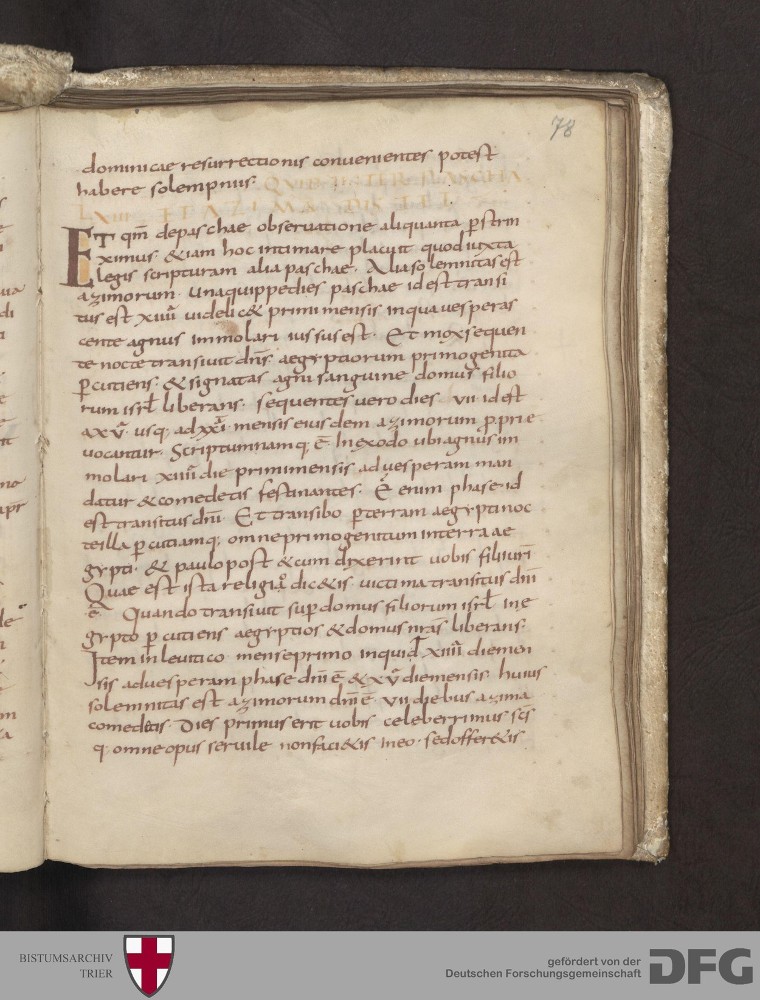 78
dominicae resurrectionis convenientes potest
habere solempnus. QUID INTER PASCHA
LXIII ET AZIMA DISTET.
ET qm̄ de paschae observatione aliquanta p̄strin
ximus. &iam hoc intimare placuit quod iuxta
legis scripturam alia paschae. Alia solemnitas est
azimorum. Una quippe dies paschae id est transi
tus est xiiii videlic& primi mensis in qua vesperas
cente agnus immolari iussus est. Et mox sequen
te nocte transivit dn̄s. aegyptiorum primogenita
p̄cutiens. & signatas agni sanguine domus filio
rum isrl̄ liberans. sequentes vero dies. vii. id est
a xv. usq; ad xxi. mensis eiusdem azimorum p̄prie
vocantur. Scriptum namq; ē. In exodo ubi agnus im
molari xiiii die primi mensis ad vesperam man
datur & comedetis festinantes. Ē enim phase id
est transitus dn̄i. Et transibo p̄ terram aegypti noc
te illa p̄cutiamq; omne primogenitum in terra ae
gypti. & paulo post & cum dixerint vobis filii vr̄i
Quae est ista religio. dic&is. victima transitus dn̄i
ē. Quando transivit sup̄ domus filiorum isrl̄ in e
gypto p̄cutiens aegyptios & domus nr̄as liberans.
Item in levitico mense primo inquid. xiiii die men
sis ad vesperam phase dn̄i ē & xv die mensis. huius
solemnitas est azimorum dn̄i ē. vii diebus azima
comedetis. Dies primus erit vobis celeberrimus sc̄s
q. omne opus servile non faci&is in eo. sed offer&is
BISTUMSARCHIV
TRIER
gefördert von der
Deutschen Forschungsgemeinschaft
DFG